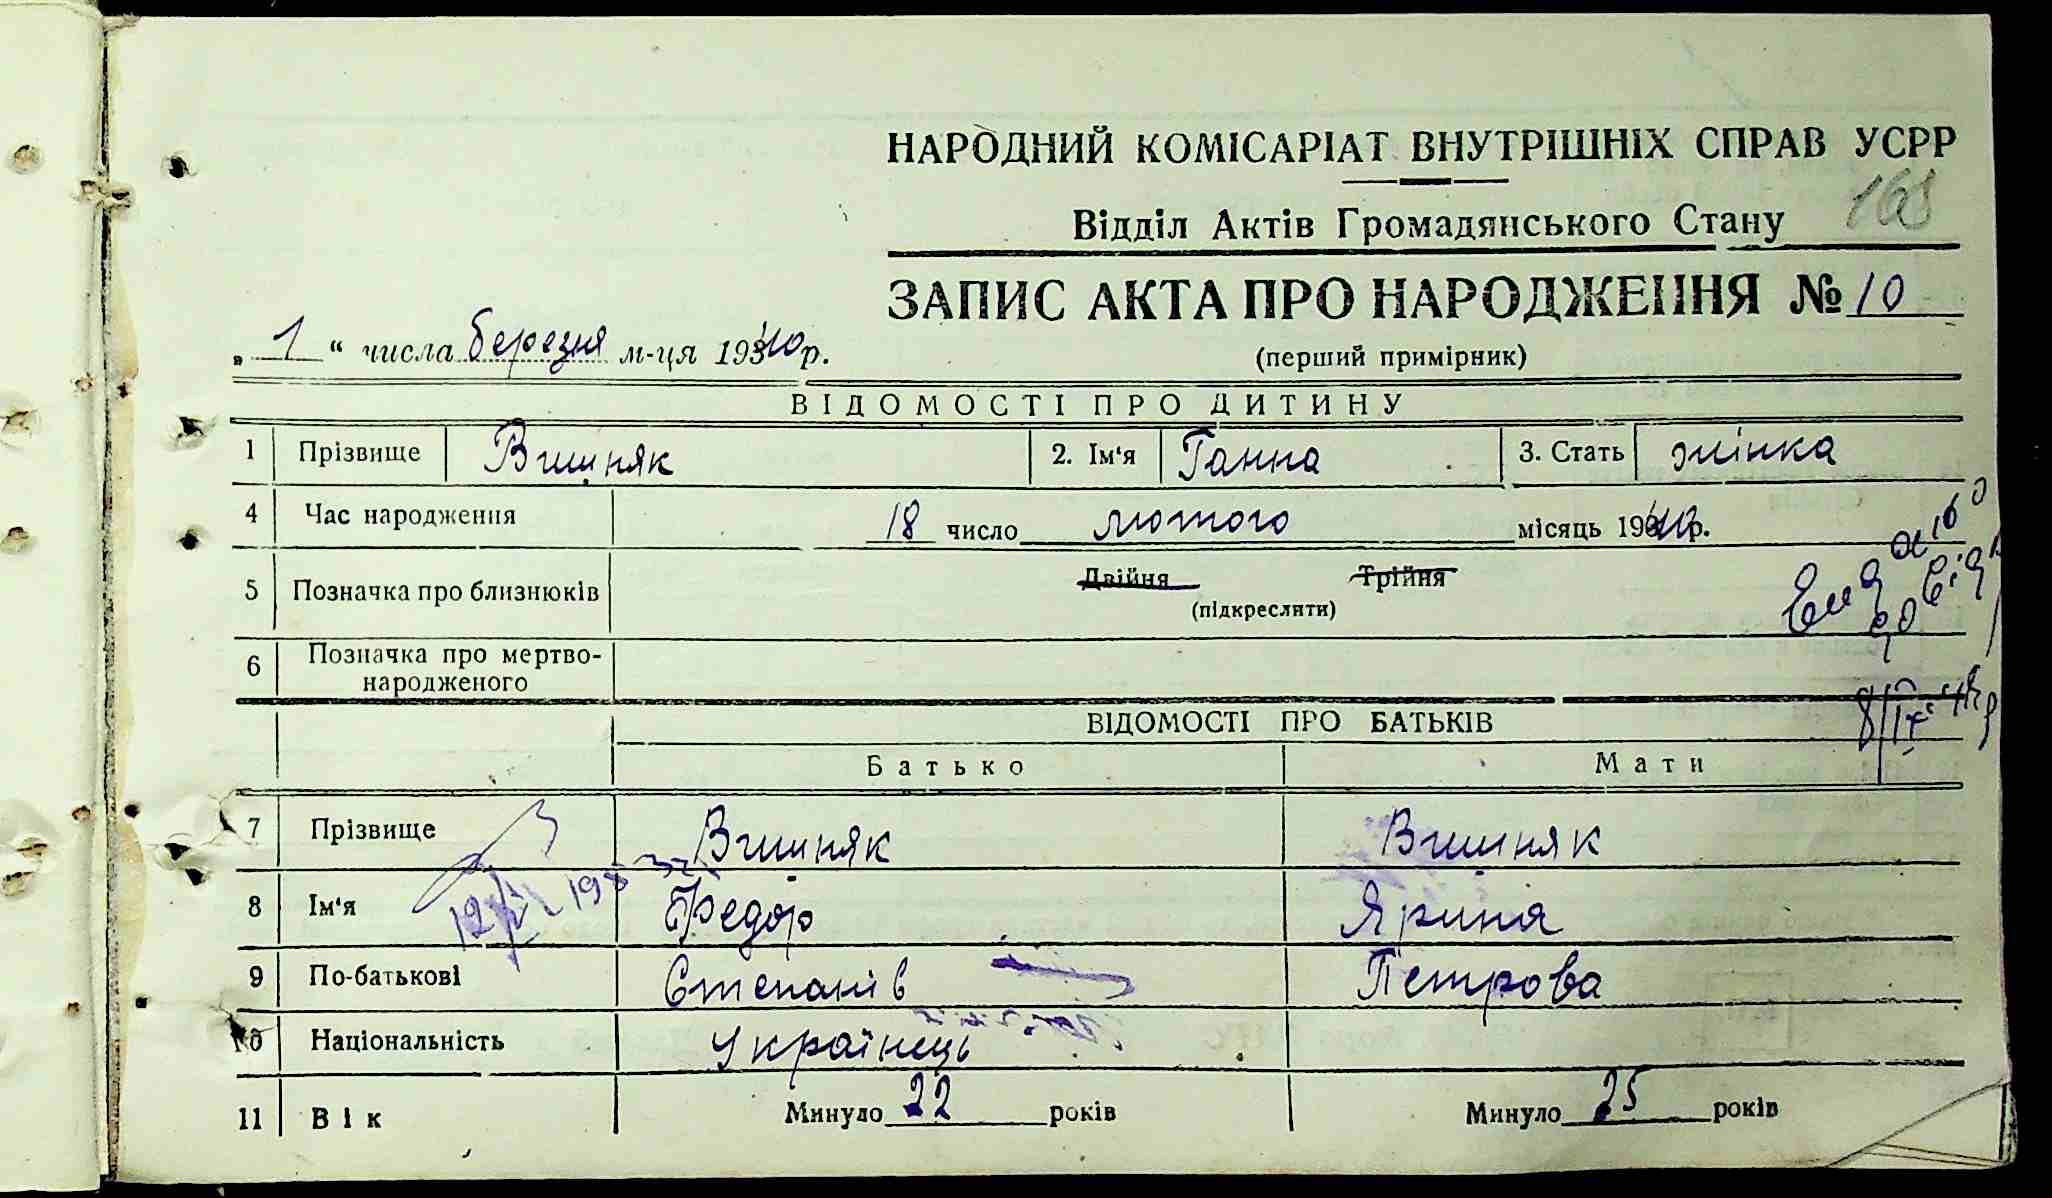 НАРОДНИЙ КОМІСАРІАТ ВНУТРІШНІХ СПРАВ УСРР
168
Відділ Актів Громадянського Стану
ЗАПИС АКТА ПРО НАРОДЖЕННЯ № 10
„ 1 “ числа березня м-ця 1940 р.
(перший примірник)
ВІДОМОСТІ ПРО ДИТИНУ
1 Прізвище Вишняк 2. Ім'я Ганна 3. Стать жінка
4 Час народження 18 число лютого місяць 1940 р.
5 Позначка про близнюків Двійня Трійня
(підкреслити)
6 Позначка про мертво-
народженого
ВІДОМОСТІ ПРО БАТЬКІВ
Батько Мати
7 Прізвище Вишняк Вишняк
8 Ім'я Федор Ярина
9 По-батькові Степанів Петрова
10 Національність Українець
11 Вік Минуло 22 років Минуло 25 років